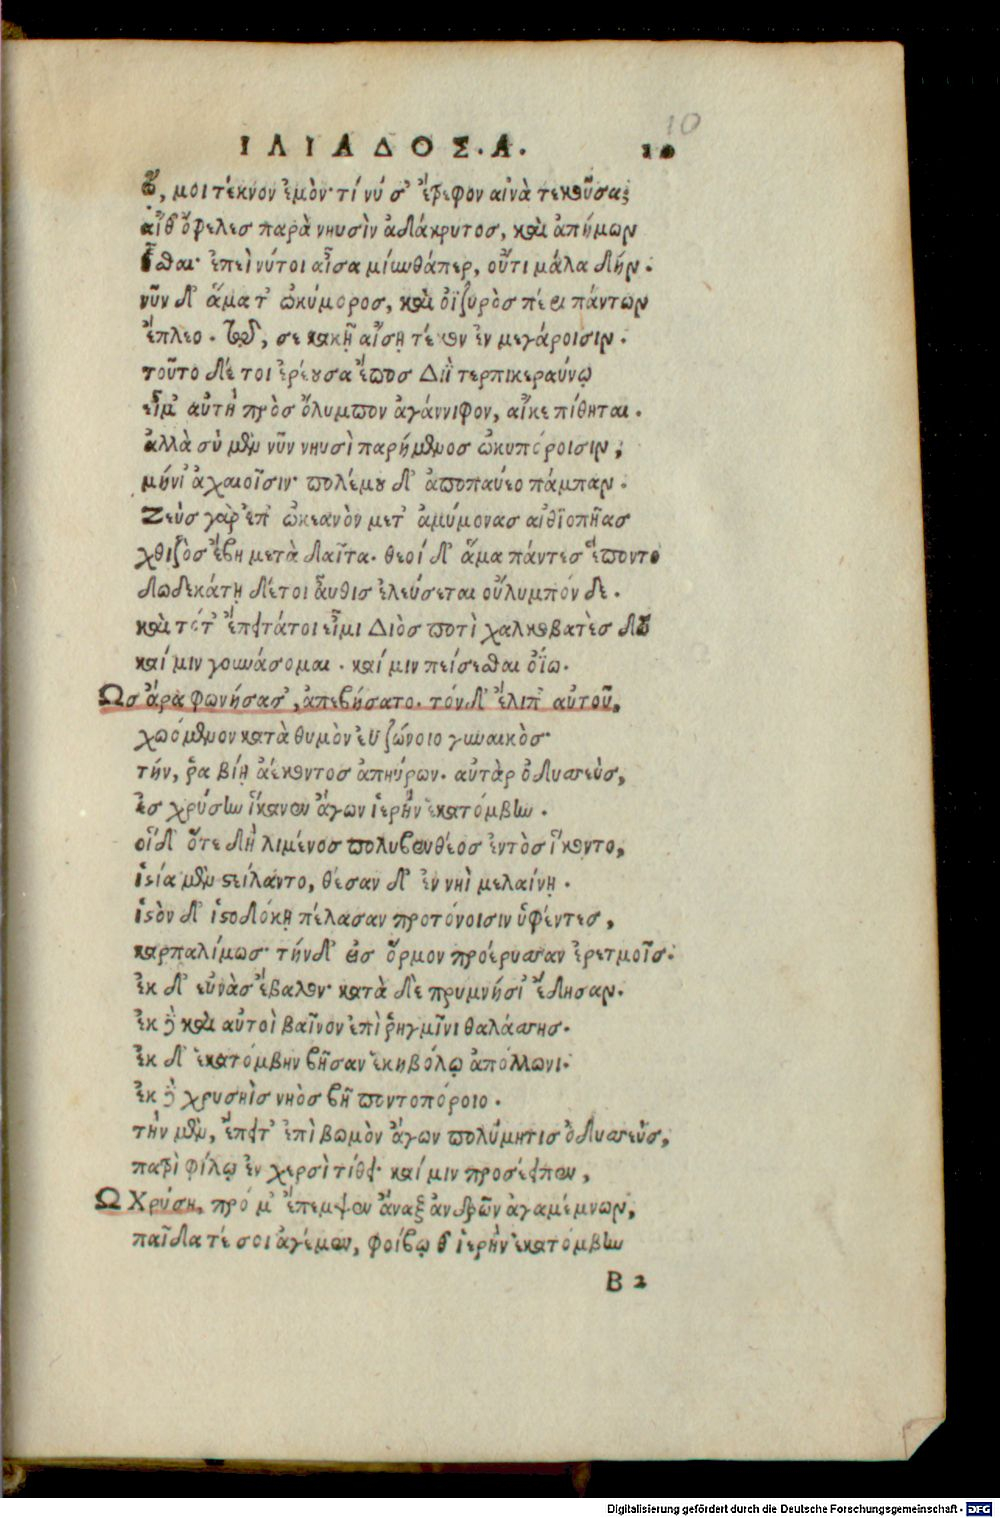 10
ΙΛΙΑΔΟΣ.Α. 10
ὤ, μοι τέκνον ἐμὸν· τί νύ σ' ἔτρεφον αἰνὰ τεκοῦσα;
αἴθ' ὄφελες παρὰ νηυσὶν ἀδάκρυτος, καὶ ἀπήμων
ἧσθαι· ἐπεὶ νύ τοι αἶσα μίνυνθά περ, οὔτι μάλα δήν.
νῦν δ' ἅμα τ' ὠκύμορος, καὶ ὀϊζυρὸς περὶ πάντων
ἔπλεο. τῷ, σε κακῇ αἴσῃ τέκον ἐν μεγάροισιν.
τοῦτο δέ τοι ἐρέουσα ἔπος Διῒ τερπικεραύνῳ
εἶμ' αὐτὴ πρὸς ὄλυμπον ἀγάννιφον, αἴκε πίθηται.
ἀλλὰ σὺ μὲν νῦν νηυσὶ παρήμενος ὠκυπόροισιν,
μήνι' ἀχαιοῖσιν· πολέμου δ' ἀποπαύεο πάμπαν.
Ζεὺς γὰρ ἐπ' ὠκεανὸν μετ' ἀμύμονας αἰθιοπῆας
χθιζὸς ἔβη μετὰ δαῖτα. θεοί δ' ἅμα πάντες ἕποντο
δωδεκάτῃ δέ τοι αὖθις ἐλεύσεται οὔλυμπόν δε.
καὶ τότ' ἔπειτά τοι εἶμι Διὸς ποτὶ χαλκοβατὲς δῶ
καί μιν γουνάσομαι. καί μιν πείσεσθαι ὀΐω.
Ως ἄρα φωνήσασ', ἀπεβήσατο. τόν δ' ἔλιπ' αὐτοῦ,
χωόμενον κατὰ θυμὸν ἐϋζώνοιο γυναικὸς·
τήν, ῥα βίῃ ἀέκοντος ἀπηύρων. αὐτὰρ ὀδυσσεὺς,
ἐς χρύσην ἵκανεν ἄγων ἱερὴν ἑκατόμβην.
οἵ δ' ὅτε δὴ λιμένος πολυβενθέος ἐντὸς ἵκοντο,
ἱστία μὲν στείλαντο, θέσαν δ' ἐν νηῒ μελαίνῃ.
ἱστὸν δ' ἱστοδόκῃ πέλασαν προτόνοισιν ὑφέντες,
καρπαλίμως· τήν δ' εἰς ὅρμον προέρυσσαν ἐρετμοῖς·
ἐκ δ' εὐνὰς ἔβαλον· κατὰ δὲ πρυμνήσι' ἔδησαν.
ἐκ δὲ καὶ αὐτοὶ βαῖνον ἐπὶ ῥηγμῖνι θαλάσσης.
ἐκ δ' ἑκατόμβην βῆσαν ἑκηβόλῳ ἀπόλλωνι.
ἐκ δὲ χρυσηῒς νηὸς βῆ ποντοπόροιο.
τὴν μὲν, ἔπειτ' ἐπὶ βωμὸν ἄγων πολύμητις ὀδυσσεὺς,
πατρὶ φίλῳ ἐν χερσὶ τίθει· καί μιν προσέειπεν,
Ω Χρύση, πρό μ' ἔπεμψεν ἄναξ ἀνδρῶν ἀγαμέμνων,
παῖδά τέ σοι ἀγέμεν, φοίβῳ θ' ἱερὴν ἑκατόμβην
Β 2
Digitalisierung gefördert durch die Deutsche Forschungsgemeinschaft - DFG